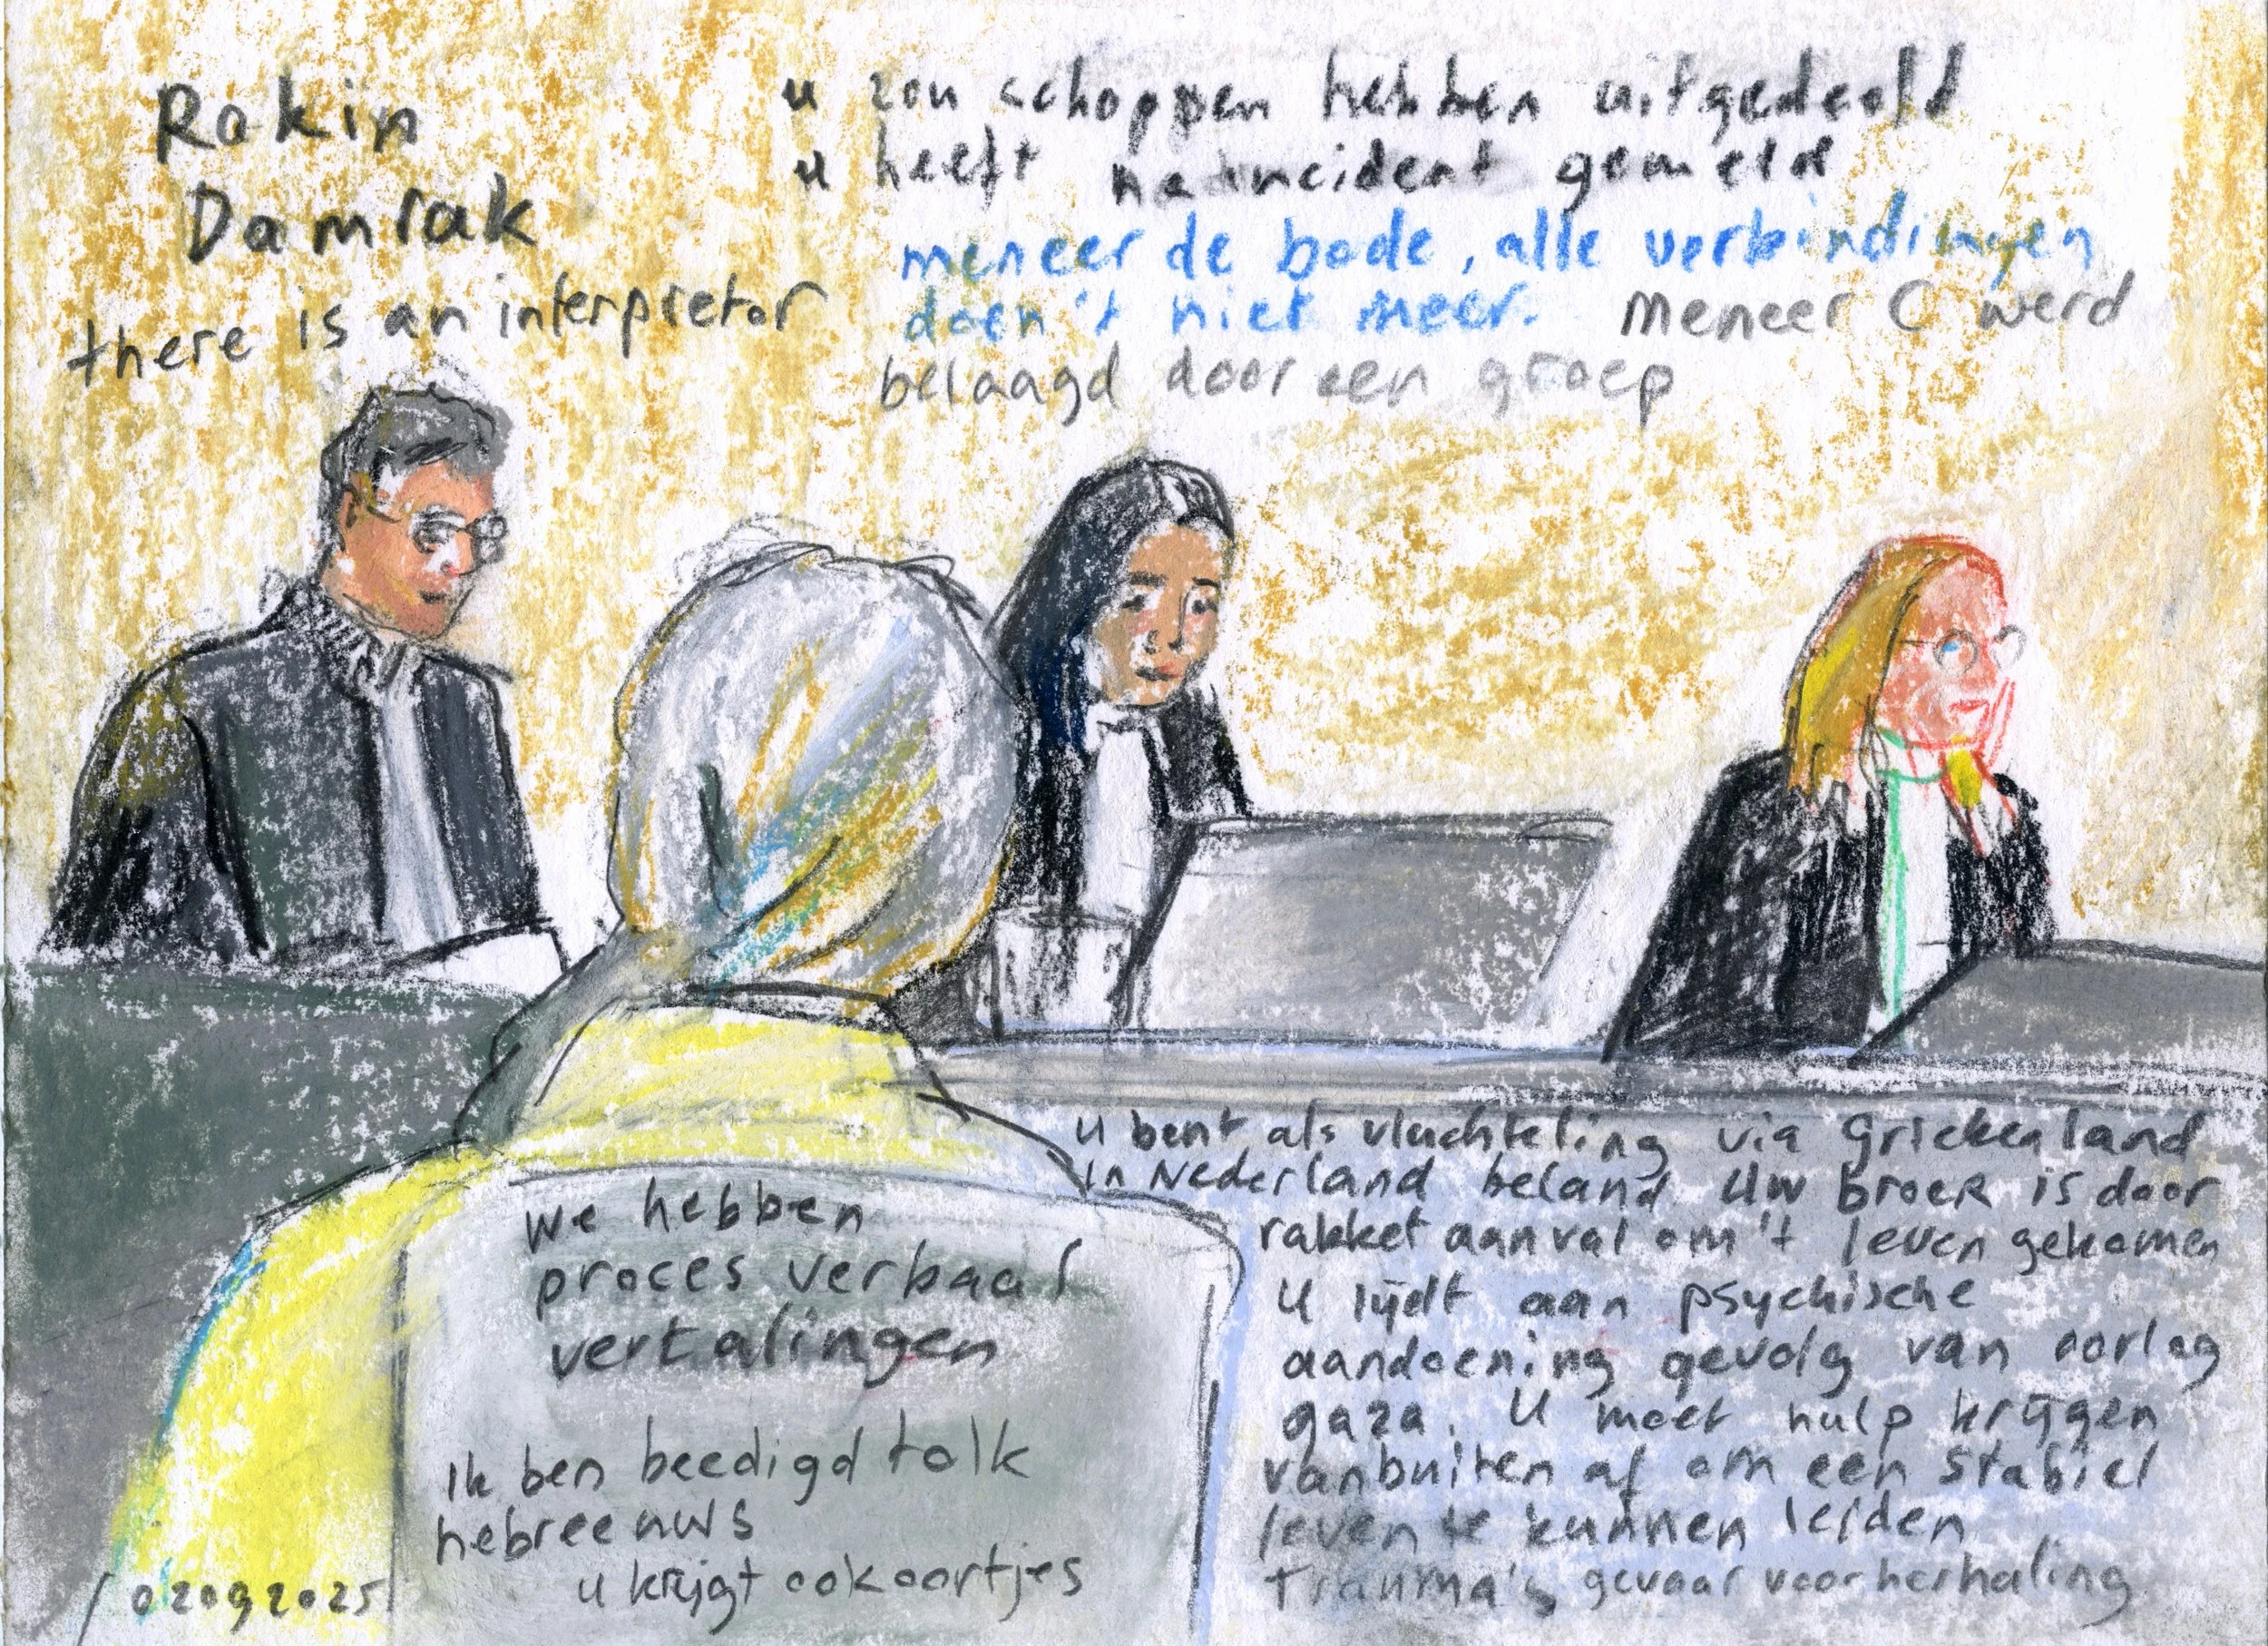 Rokin
Damrak
there is an interpretor
u zou schoppen hebben uitgedeeld
u heeft na incident gemeld
meneer de bode, alle verbindingen
doen 't niet meer. Meneer C werd
belaagd door een groep
We hebben
proces verbaal
vertalingen
Ik ben beedigd tolk
hebreeuws
u krijgt ook oortjes
02092025
u bent als vluchteling via Griekenland
in Nederland beland Uw broer is door
rakket aanval om 't leven gekomen
U lijdt aan psychische
aandoening gevolg van oorlog
gaza. U moet hulp krijgen
van buiten af om een stabiel
leven te kunnen leiden
Trauma's gevaar voor herhaling